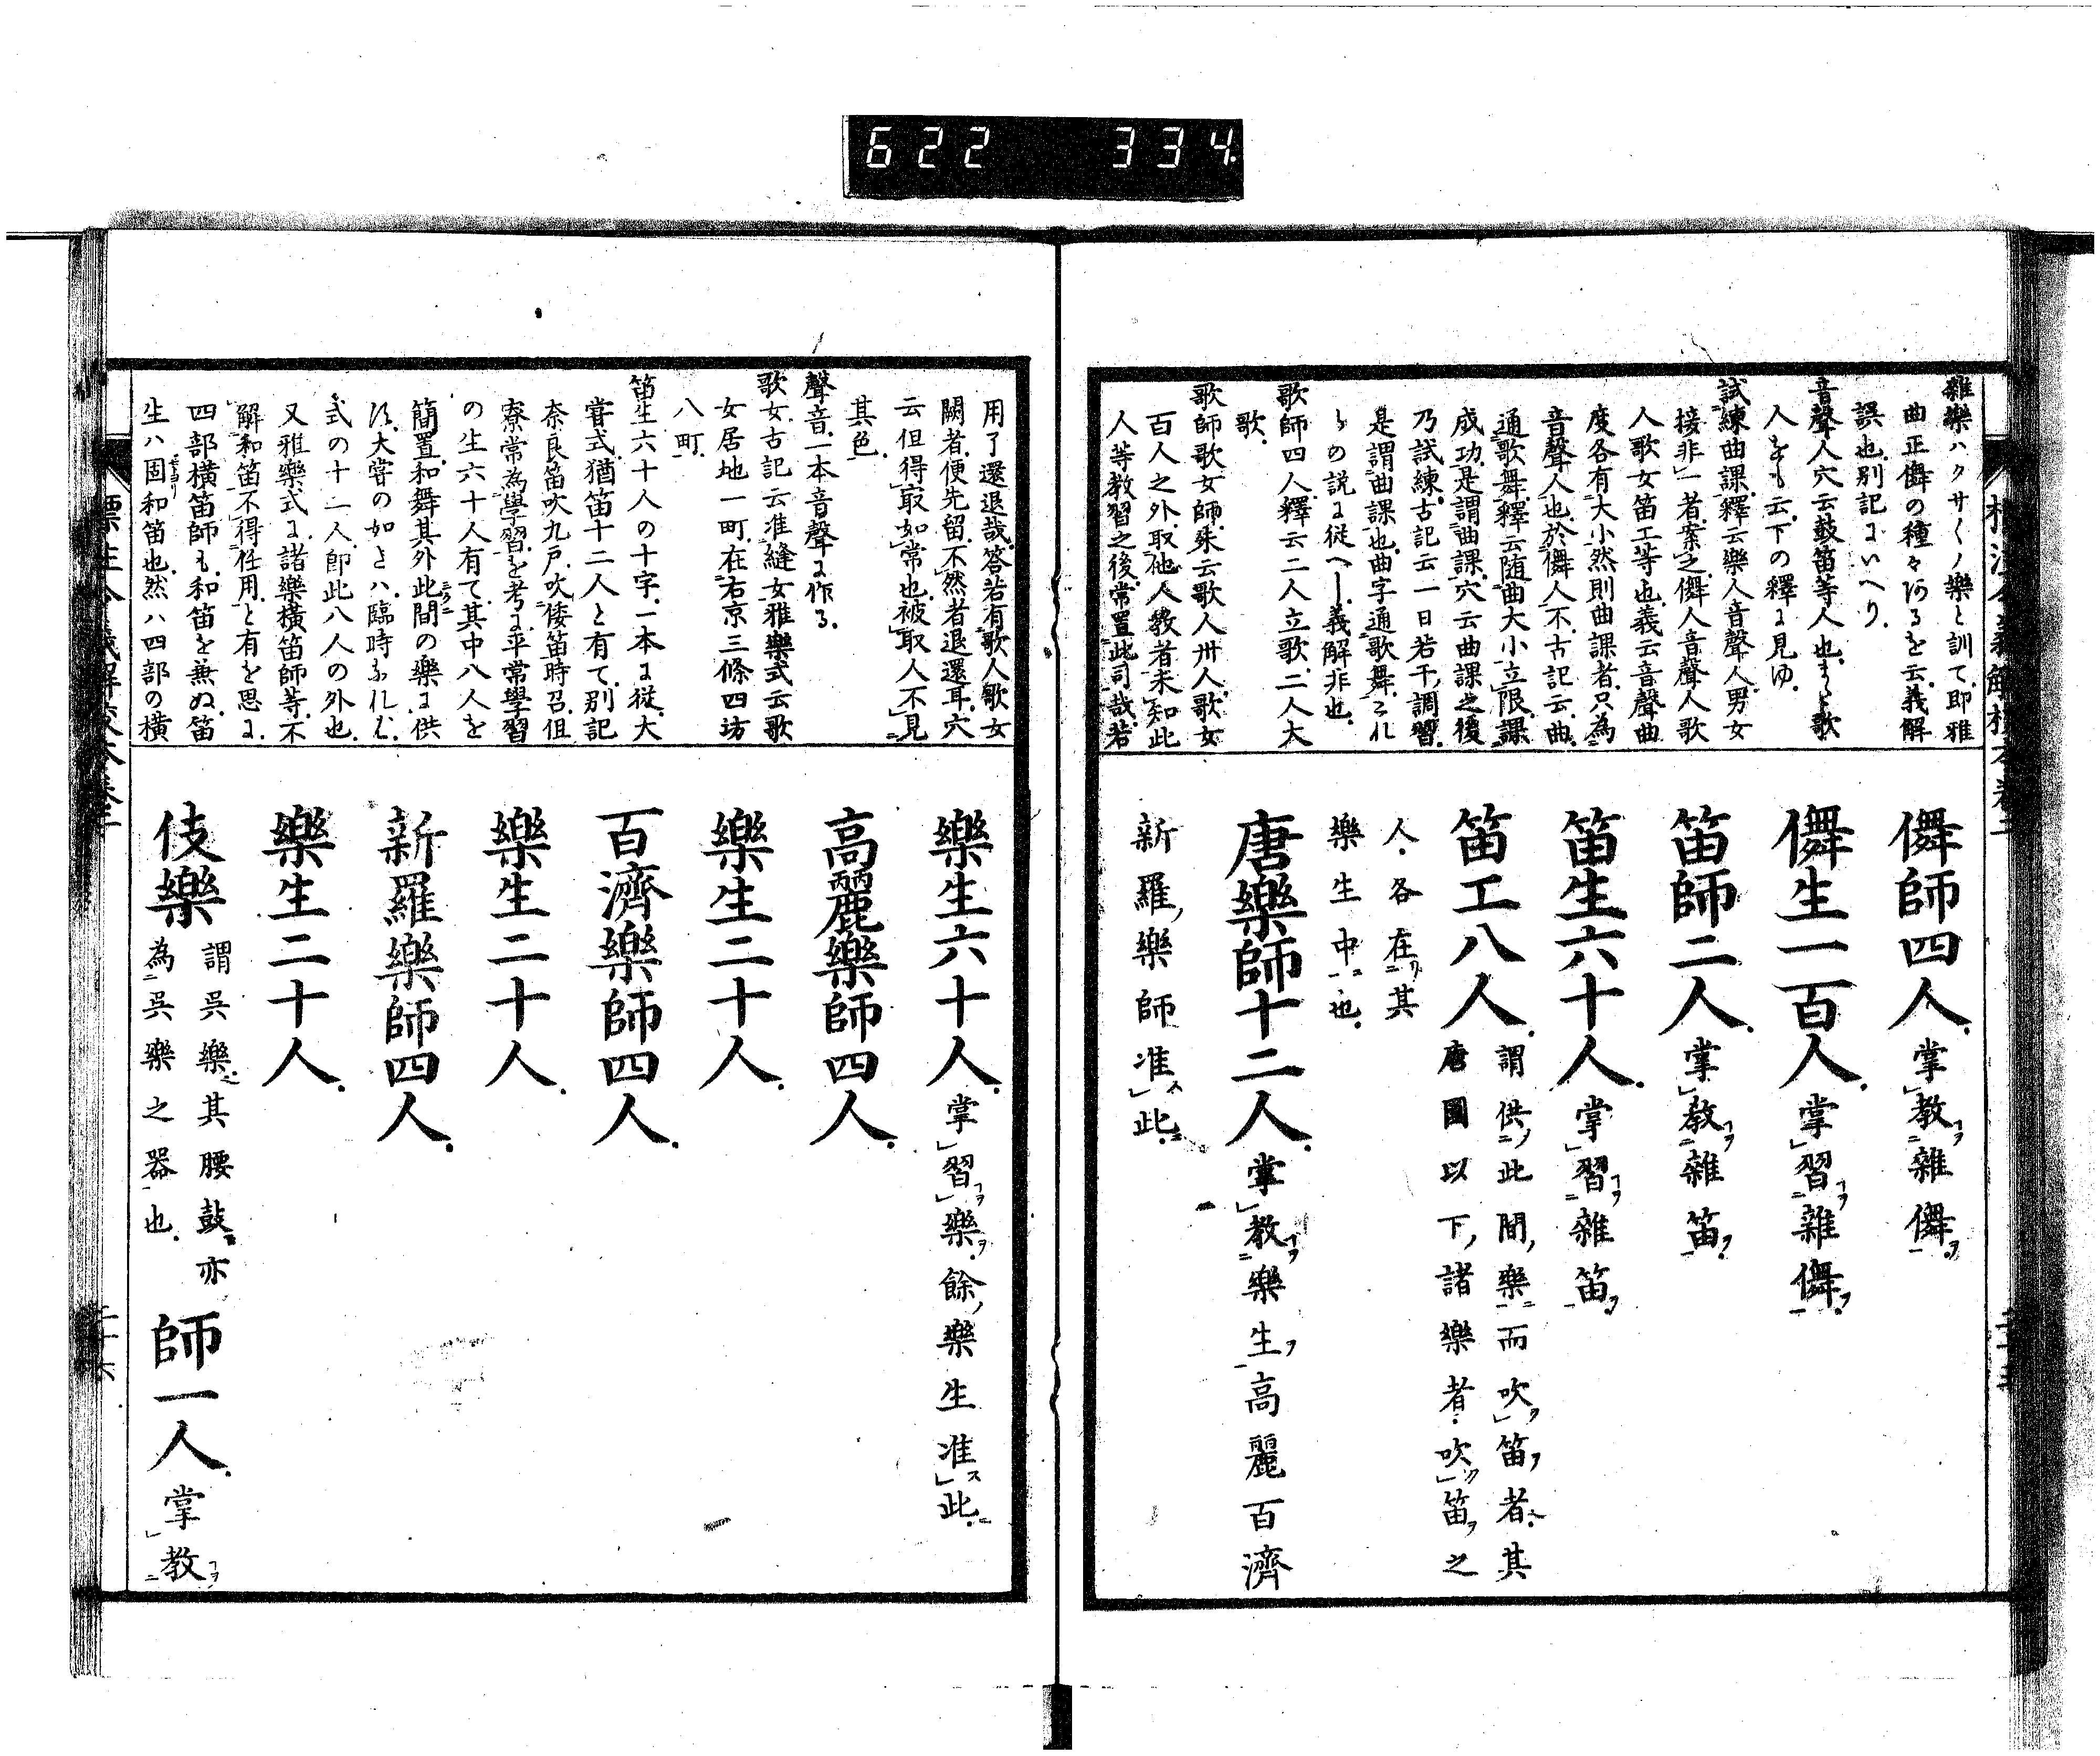 622 334
雜樂ハクサ〱ノ樂と訓て即雅
曲正儛の種々あるを云義解
誤也別記にいへり
音聲人穴云鼓笛等人也
人をも云下の釋に見ゆ
試練曲課釋云樂人音聲人男女
接非一者案之儛人音聲人歌
人歌女笛工等也義云音聲曲
度各有大小然則曲課者只為
音聲人也於儛人不古記云曲
通歌舞釋云随曲大小立限課
成功是謂曲課穴云曲課之後
乃試練古記云一日若干調習
是謂曲課也曲字通歌舞これ
らの説に従へし義解非也
歌師四人釋云二人立歌二人大
歌
歌師歌女師朱云歌人卅人歌女
百人之外取他人教者未知此
人等教習之後常置此司哉若
儛師四人掌教雜儛
儛生一百人掌習雜儛
笛師二人掌教雜笛
笛生六十人掌習雜笛
笛工八人謂供此間樂而吹笛者其
唐國以下諸樂者吹笛之
人各在其
樂生中也
唐樂師十二人掌教樂生高麗百濟
新羅樂師准此
用了還退哉答若有歌人歌女
闕者便先留不然者退還耳穴
云但得取如常也被取人不見
其色
聲音一本音聲に作る
歌女古記云准縫女雅樂式云歌
女居地一町在右京三條四坊
八町
笛生六十人の十字一本に從大
甞式猶笛十二人と有て別記
奈良笛吹九戸吹倭笛時召但
寮常為學習を考に平常學習
の生六十人有て其中八人を
簡置和舞其外此間の樂に供
大甞の如きハ臨時なれば
式の十二人即此八人の外也
又雅樂式に諸樂横笛師等不
解和笛不得任用と有を思に
四部横笛師も和笛を兼ぬ笛
生ハ固和笛也然ハ四部の横
樂生六十人掌習樂餘樂生准此
高麗樂師四人
樂生二十人
百濟樂師四人
樂生二十人
新羅樂師四人
樂生二十人
伎樂謂呉樂其腰鼓亦
為呉樂之器也
師一人掌教